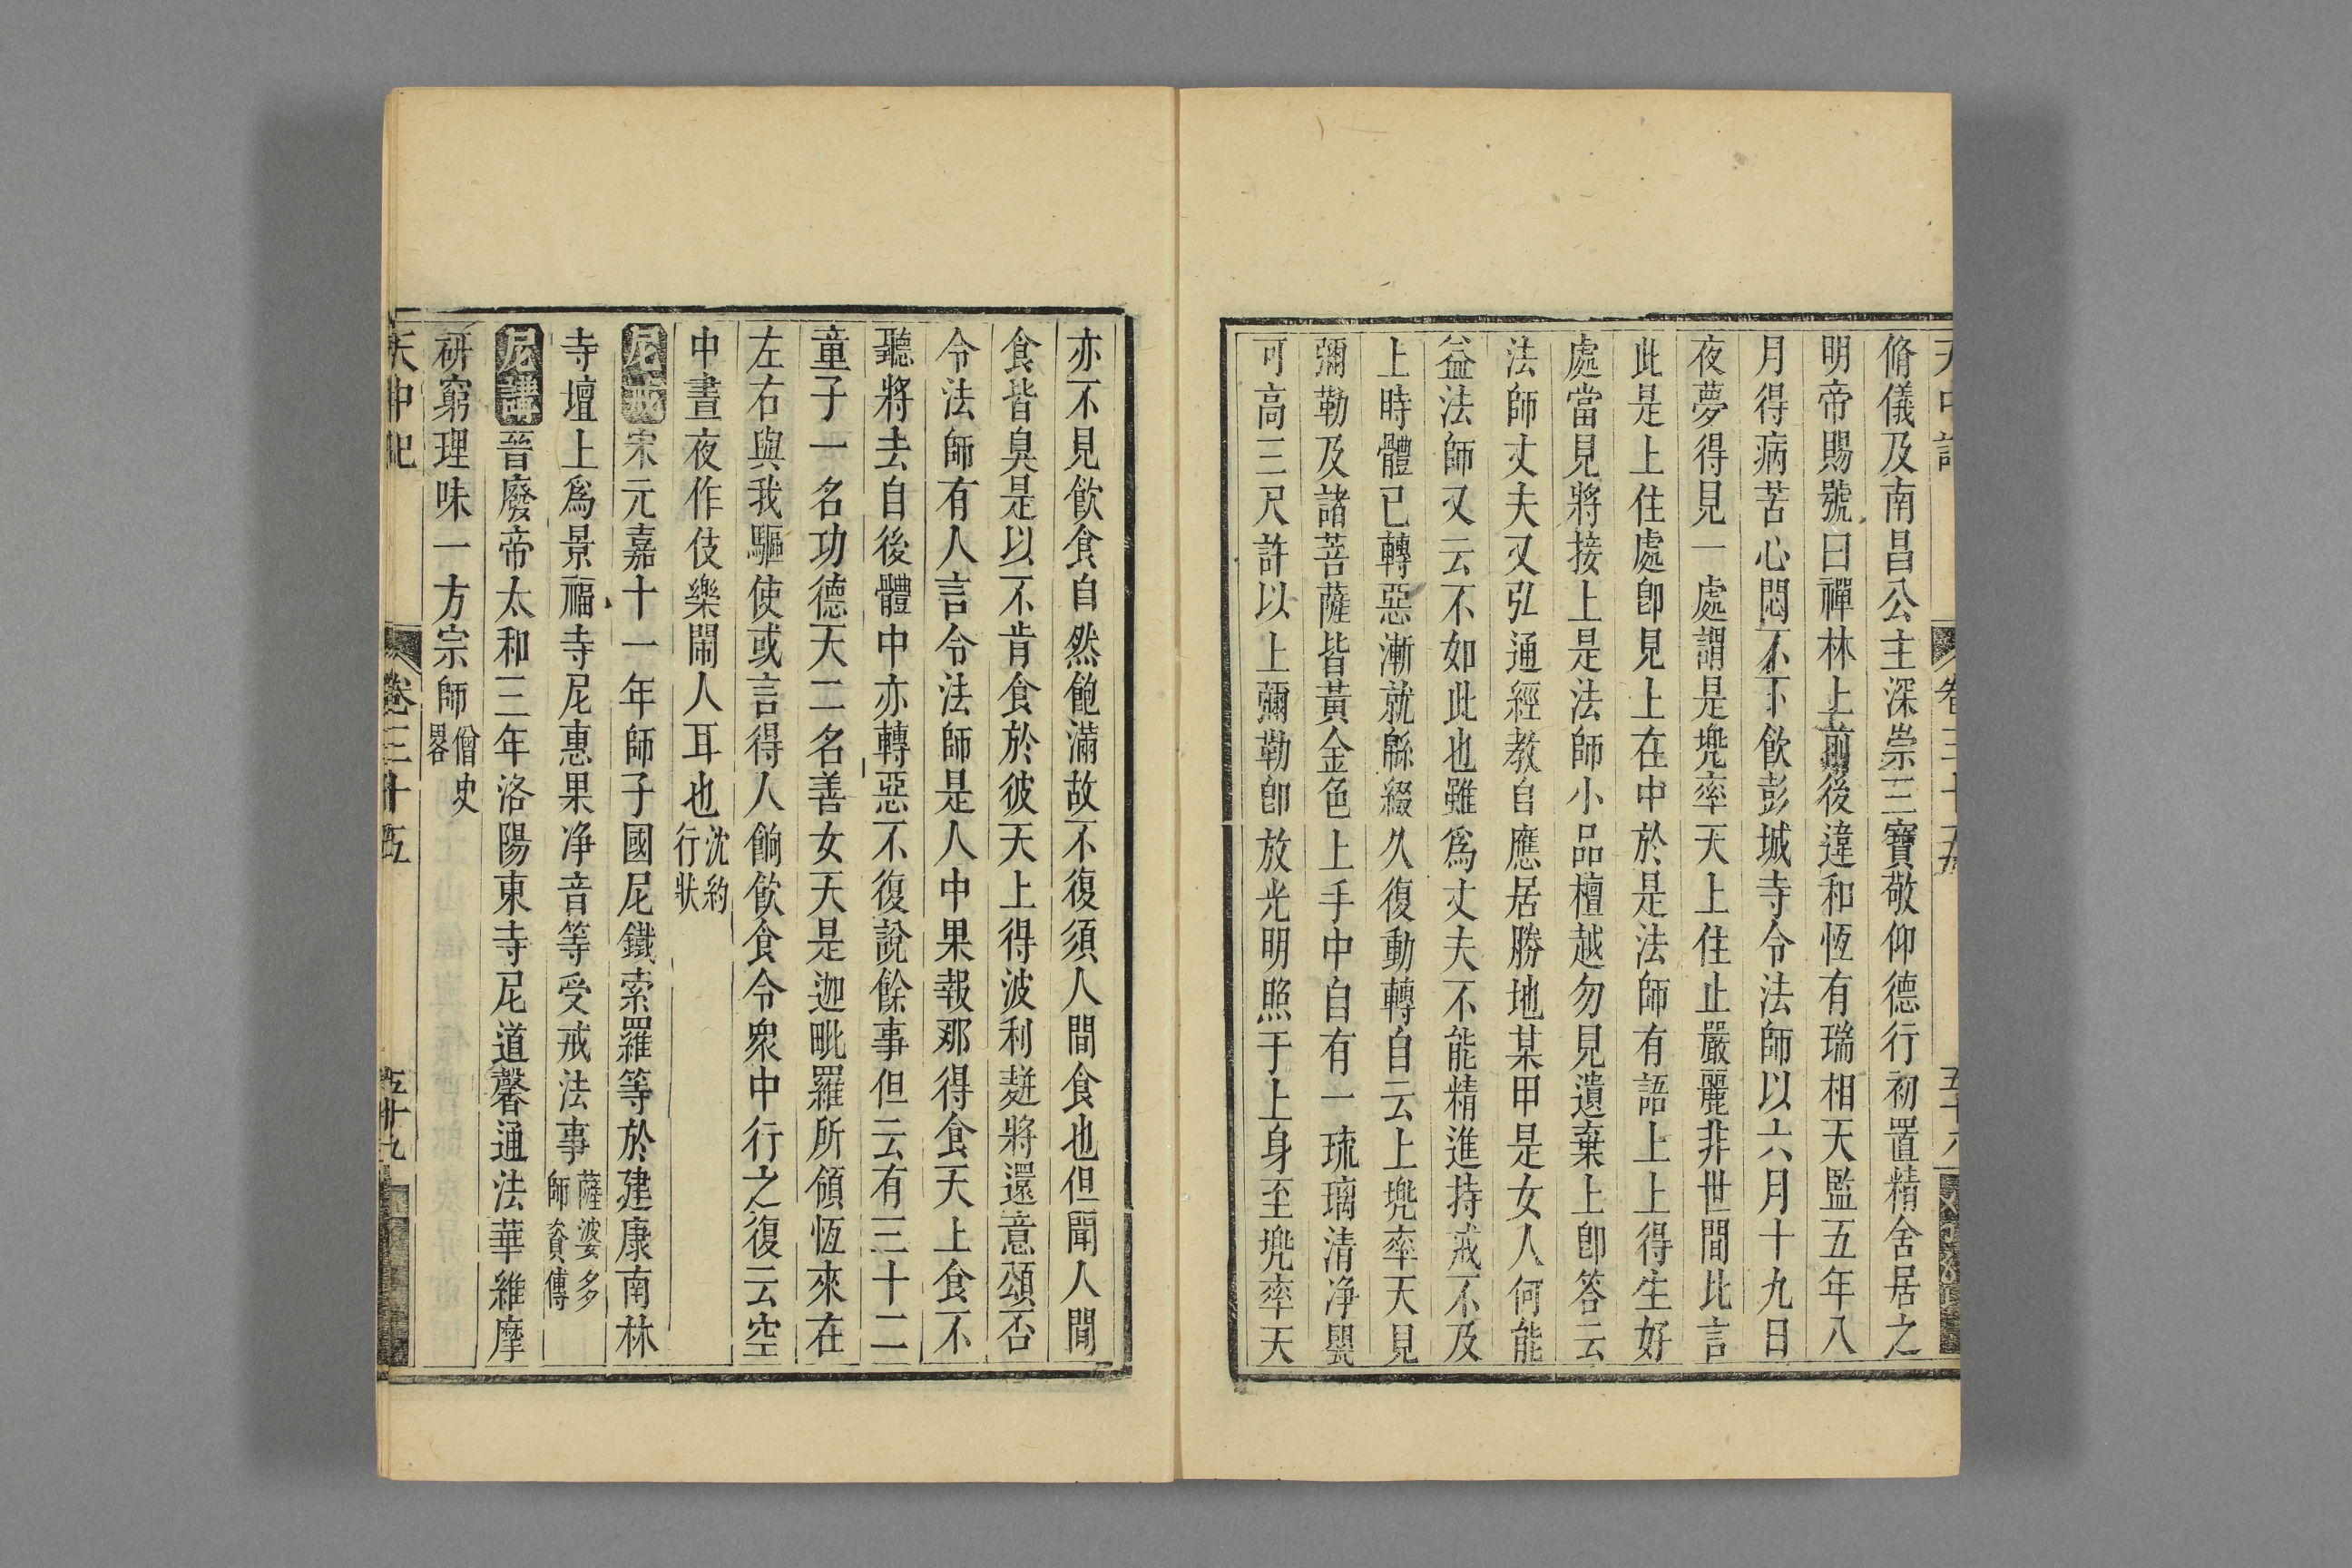 天中記 卷三十五 五十八
脩儀及南昌公主深崇三寶敬仰德行初置精舍居之
明帝賜號曰禪林上前後違和恆有瑞相天監五年八
月得病苦心悶不下飲彭城寺令法師以六月十九日
夜夢得見一處謂是兠率天上住止嚴麗非世間比言
此是上住處卽見上在中於是法師有語上上得生好
處當見將接上是法師小品檀越勿見遺棄上卽答云
法師丈夫又弘通經教自應居勝地某甲是女人何能
益法師又云不如此也雖爲丈夫不能精進持戒不及
上時體已轉惡漸就緜綴久復動轉自云上兠率天見
彌勒及諸菩薩皆黃金色上手中自有一琉璃清净甖
可高三尺許以上彌勒卽放光明照于上身至兠率天
亦不見飲食自然飽滿故不復須人間食也但聞人間
食皆臭是以不肯食於彼天上得波利䴵將還意頌否
令法師有人言令法師是人中果報那得食天上食不
聽將去自後體中亦轉惡不復說餘事但云有三十二
童子一名功德天二名善女天是迦毗羅所領恆來在
左右與我驅使或言得人餉飲食令衆中行之復云空
中晝夜作伎樂鬧人耳也 沈約行狀
尼戒 宋元嘉十一年師子國尼鐵索羅等於建康南林
寺壇上爲景福寺尼惠果净音等受戒法事 薩婆多師資傳
尼講 晉廢帝太和三年洛陽東寺尼道馨通法華維摩
研窮理味一方宗師 僧史畧
天中記 卷三十五 五十九